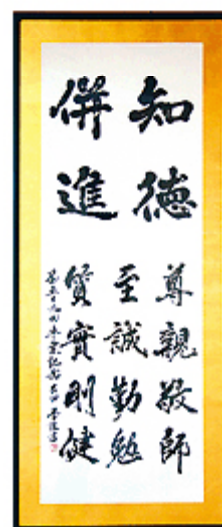 知徳
併進
尊親敬師
至誠勤勉
質実剛健